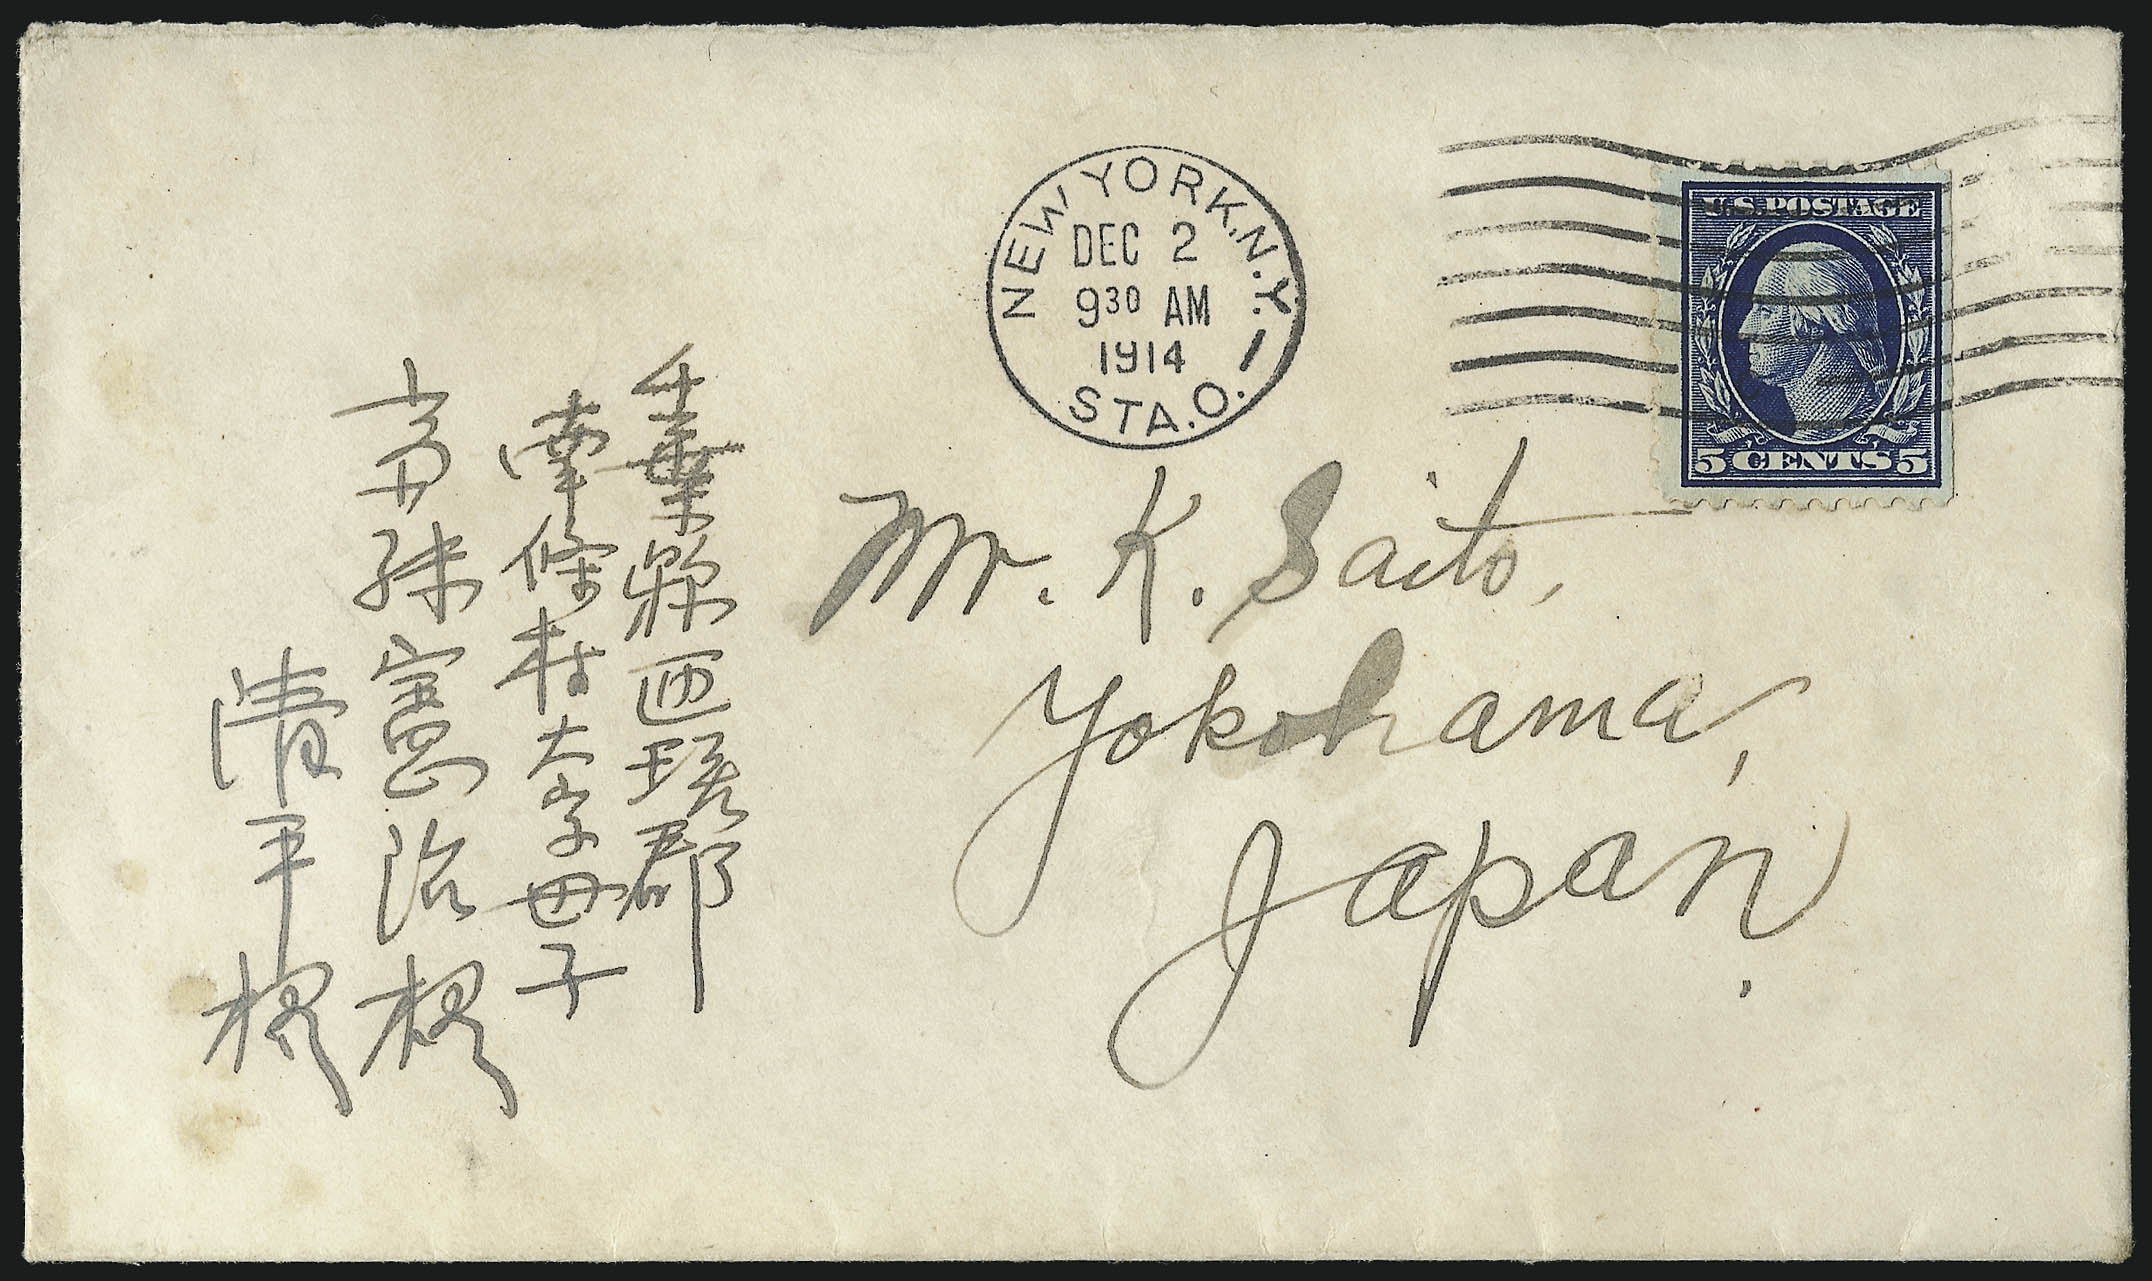 NEW YORK, N.Y.
DEC 2
9 30 AM
1914
STA. O.
U.S. POSTAGE
5 CENTS 5
Mr. K. Saito,
Yokohama,
Japan.
千葉縣匝瑳郡
南條村大字母子
憲治様
清平様